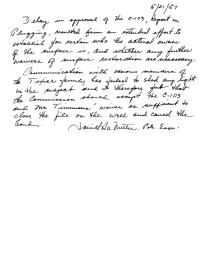 5/21/57
Delay in approval of the C-103, Report on
Plugging, resulted from an extended effort to
ascertain for certain who the actual owner
of the surface is, and whether any further
waivers of surface restoration are necessary.
Communication with various members of
the family has failed to shed any light
on the subject and I therefore felt that
the Commission should accept the C-103
and Mr. Timmons' waiver as sufficient to
close the file on the well and cancel the
bond.